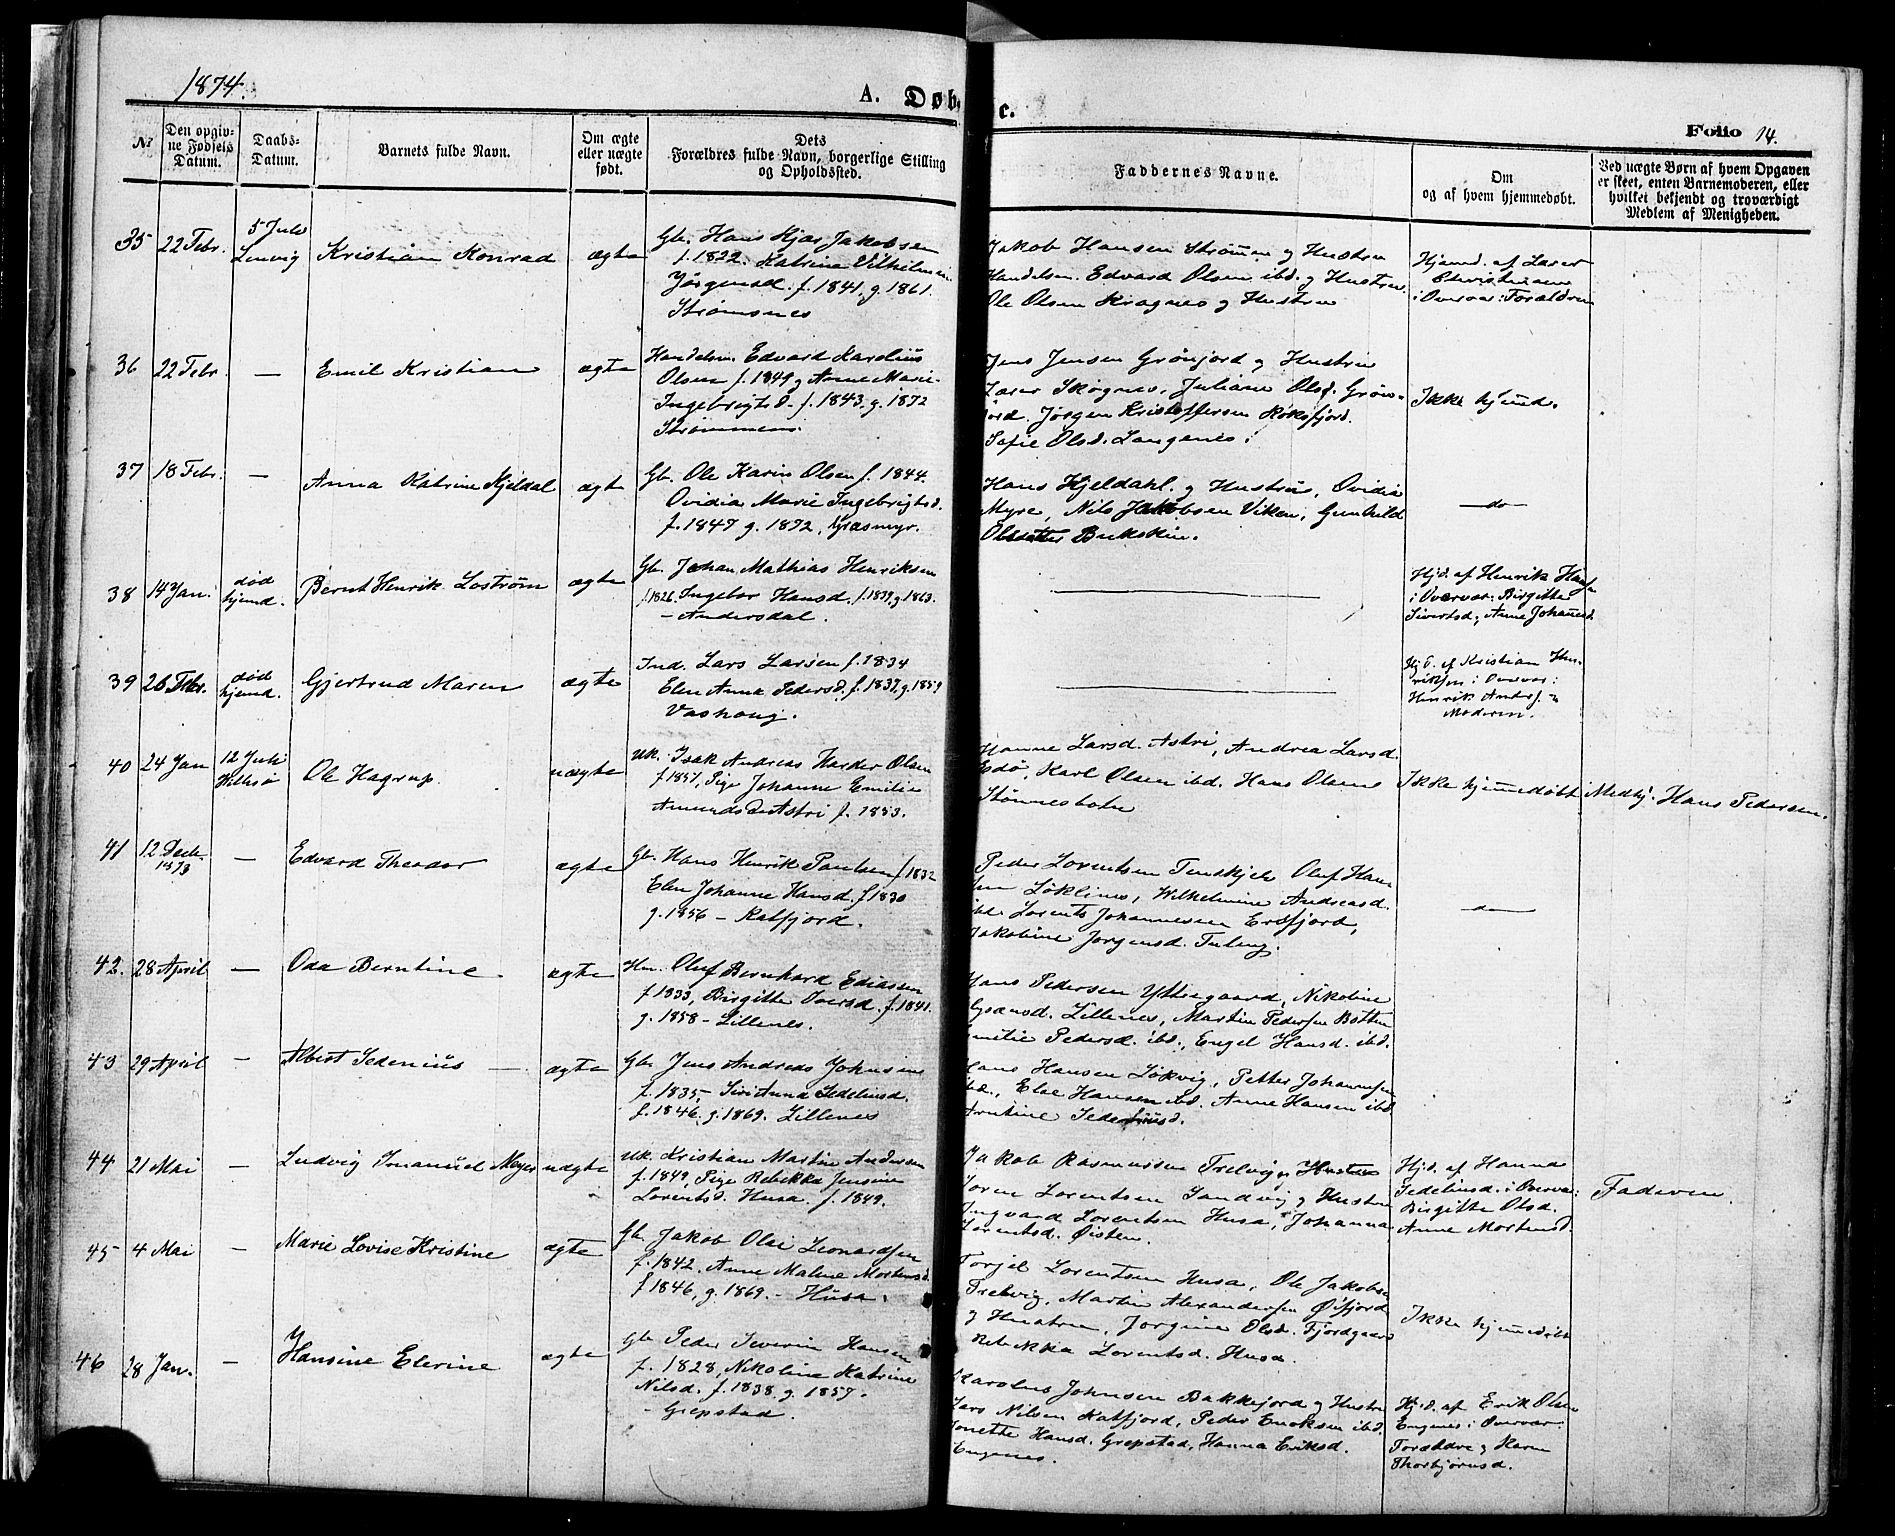 1874.
A. Døb
e.
Folio 14.
No
Den opgivne Fødsels Datum.
Daabs-Datum.
Barnets fulde Navn.
Om ægte eller uægte født.
Dets Forældres fulde Navn, borgerlige Stilling og Opholdssted.
Faddernes Navne.
Om og af hvem hjemmedøbt.
Ved uægte Børn af hvem Opgaven er skeet, enten Barnemoderen, eller hvilket bekjendt og troværdigt Medlem af Menigheden.
35 22 Febr. 5 Juli Lenvig Kristian Konrad ægte
Gb. Hans Kjær Jakobsen
f. 1822. Katrine Vilhelmine
Jørgensd. f. 1841. g. 1861.
Strømsnes
Jakob Hansen Strømmen og Hustru
Handelsm. Edvard Olsen ibd. og Hustru.
Ole Olsen Kragnes og Hustru
Hjemd. af Lærer
Christensen
i Overvær: Forældrene
36 22 Febr. — Emil Kristian ægte
Handelsm. Edvard Karolius
Olsen f. 1849 og Anne Marie
Ingebrigtsd. f. 1843. g. 1872
Strømmen
Jens Jensen Grønjord og Hustru
Lærer Skognes, Juliane Olsd. Grøn-
jord, Jørgen Kristoffersen Roksfjord.
Sofie Olsd. Langenes.
Ikke hjemd.
37 18 Febr. — Anna Katrine Kjeldal ægte
Gb. Ole Karin Olsen f. 1844.
Ovidia Marie Ingebrigtsd.
f. 1847 g. 1872, Græsmyr.
Hans Kjeldahl og Hustru, Ovidia
Myre, Nils Jakobsen Viken, Gunhild
Olsdatter Bukskin.
do
38 14 Jan. død hjemd. Bernt Henrik Lostrøm ægte
Gb. Johan Mathias Henriksen
f. 1826. Ingebor Hansd. f. 1839 g. 1863.
- Andersdal.
Hjd. af Henrik Hans
i Overvær: Birgitte
Sivertsd., Anne Johannesd.
39 26 Febr. død hjemd. Gjertrud Maren ægte
Ind. Lars Larsen f. 1834
Elen Anna Pedersd. f. 1837. g. 1859
Vashaug.
Hjd. af Kristian Hen-
riksen i Overvær:
Henrik Anders. og
Moderen.
40 24 Jan 12 Juli Hillesø Ole Hagrup. uægte
Uk. Isak Andreas Harder Olsen
f. 1851, Pige Johanne Emilie
Amundsd. Astri f. 1853.
Hanne Larsd. Astri, Andrea Larsd.
Edø, Karl Olsen ibd. Hans Olsen
Stønnesbotn
Ikke hjemmedøbt
Medhj. Hans Pedersen.
41 12 Decb. 1873 — Edvard Theodor ægte
Gb. Hans Henrik Paulsen f 1832
Elen Johanne Hansd. f 1830
g. 1856 - Katfjord.
Peder Lorentsen Tenskjer Oluf Han-
sen Løklines, Wilhelmine Andreasd.
ibd. Lorents Johannesen Ersfjord,
Jakobine Jørgensd. Tuleng.
do
42. 28 April — Oda Berntine ægte
Hm. Oluf Bernhard Ediassen
f 1833, Birgitte Iversd. f. 1841.
g. 1858 - Lillenes.
Hans Pedersen Yttregaard, Nikoline
Lillenes, Martin Pedersen Botten
Emilie Pedersd. ibd., Engel Hansd. ibd.
43 29 April — Albert Sedenius ægte
Gb. Jens Andreas Johnsen
f. 1835, Siri Anna Sedeliusd.
f. 1846. g. 1869. Lillenes
Hans Hansen Løkvig, Petter Johannesen
ibd., Else Hansen ibd. Anne Hansen ibd
44 21 Mai — Ludvig Imanuel Meyer uægte
Uk. Kristian Martin Andersen
f. 1849, Pige Rebekka Jensine
Lorentsd. Husa. f. 1849.
Jakob Rasmussen Trelvig og Hustru
Søren Lorentsen Sandvig og Hustru
Ingvard Lorentsen Husa, Johanna
Lorentsd. Østen.
Hjd. af Hanna
Sedeliusd. i Overvær:
Birgitte Olsd.
Anne Mortensd.
Faderen
45 4 Mai — Marie Lovise Kristine ægte
Gb. Jakob Olai Leonardsen
f. 1842. Anne Malene Mortensd.
f 1846, g. 1869. - Husa.
Torjel Lorentsen Husa, Ole Jakobsen
Trelvig, Martin Alexandersen Øifjord
og Hustru, Jørgine Olsd. Fjordgaard
Rebekka Lorentsd. Husa.
Ikke hjemmedøbt
46 28 Jan. — Hansine Elerine ægte
Gb. Peder Severin Hansen
f. 1828, Nikoline Katrine
Nilsd. f. 1838. g. 1857.
- Grepstad.
Karolus Johnsen Bakkejord og Hustru
Lars Nilsen Katfjord, Peder Eriksen ibd.
Jonette Hansd. Grepstad, Hanna Eriksd.
Engenes.
Hjd. af Erik Olsen
Engenes i Overvær:
Forældre og Karen
Thorbjørnsd.